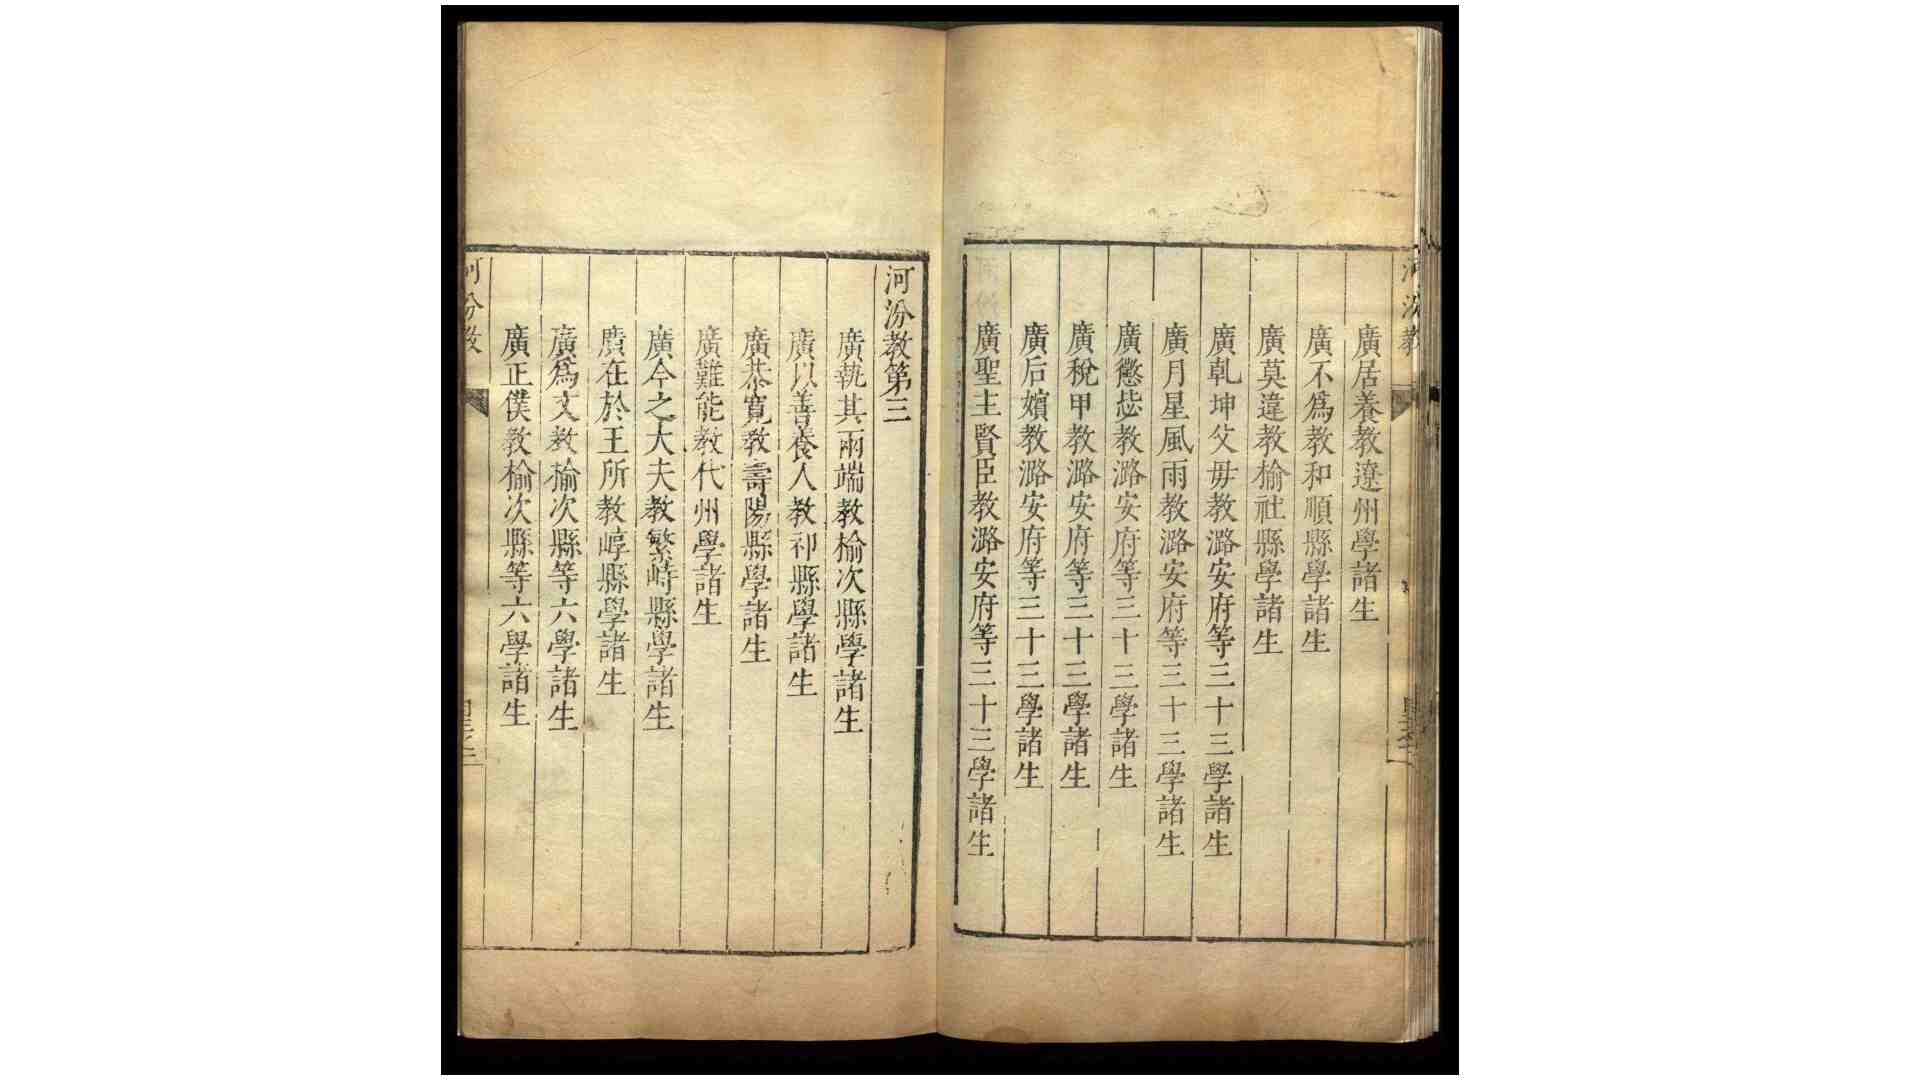 河汾教
廣居養教遼州學諸生
廣不爲教和順縣學諸生
廣莫違教榆社縣學諸生
廣乹坤父毋教潞安府等三十三學諸生
廣月星風雨教潞安府等三十三學諸生
廣懲怭教潞安府等三十三學諸生
廣稅甲教潞安府等三十三學諸生
廣后嬪教潞安府等三十三學諸生
廣聖主賢臣教潞安府等三十三學諸生
河汾教第三
廣執其兩端教榆次縣學諸生
廣以善養人教祁縣學諸生
廣恭寬教壽陽縣學諸生
廣難能教代州學諸生
廣今之大夫教繁峙縣學諸生
廣在於王所教崞縣學諸生
廣爲文教榆次縣等六學諸生
廣正僕教榆次縣等六學諸生
河汾教